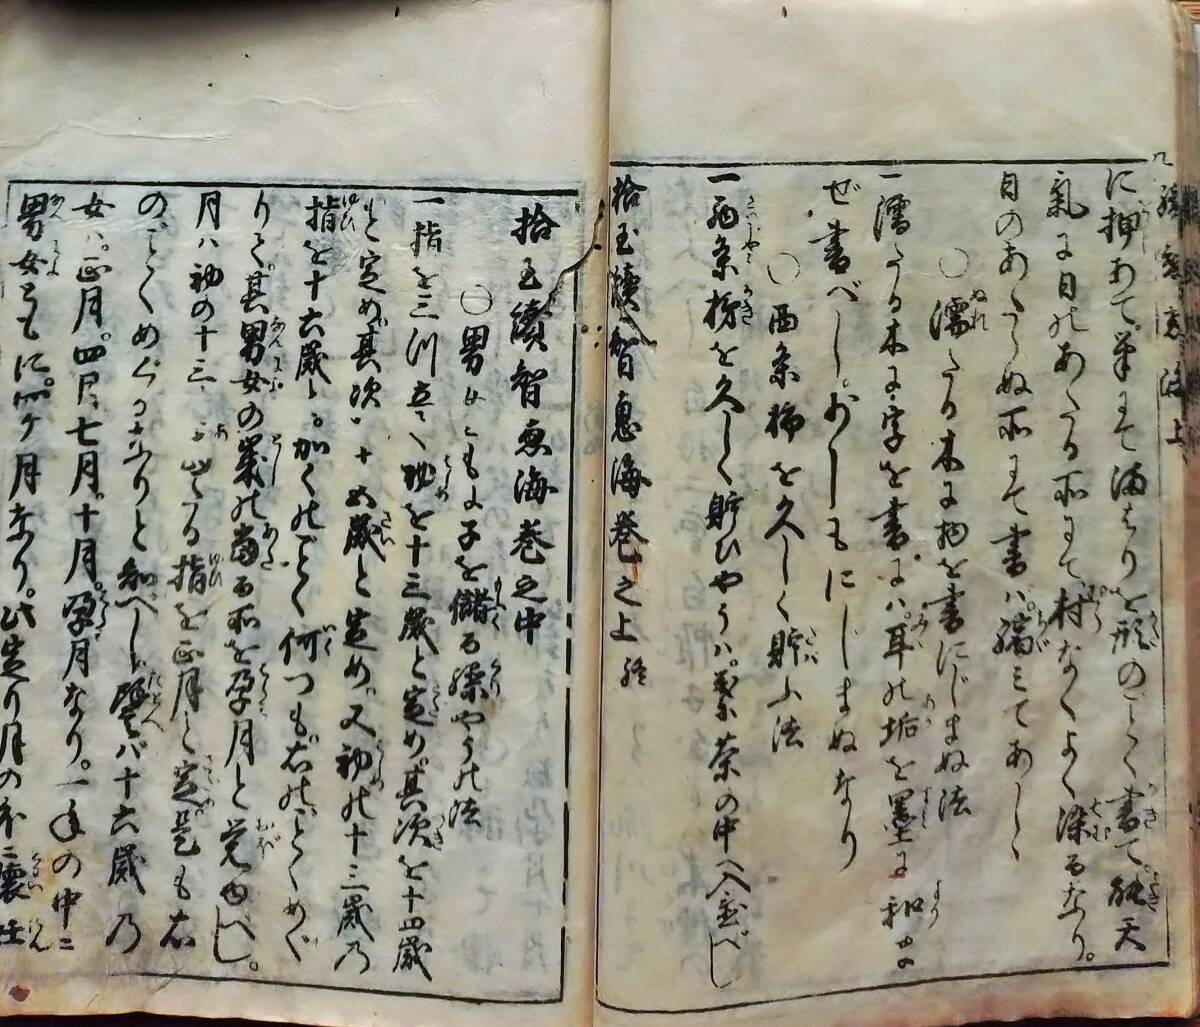 に押あて筆にて湯はりを形のごとく書て能天
氣に日のあたる所にて村なくよく染るなり。
日のあたらぬ所にて書バ滲ミてあしし
○濡たる木に物を書にじまぬ法
一濡たる木に字を書にハ。耳の垢を墨に和
ぜ書べし。少しもにじまぬなり
○西条柿を久しく貯ふ法
一西条柿を久しく貯ひやうハ。葉茶の中へ入置べし
拾玉續智惠海巻之上終
拾玉續智恵海巻之中
○男女ともに子を儲る操やうの法
一指を三川立て初を十三歳と定め。其次を十四歳
と定め其次ハ十五歳と定め。又初の十三歳乃
指を十六歳と。加くのごとく何つも右のごとくめぐ
りて。其男女の歳の當る所を孕月と覚ゆべし。
月ハ初の十三に当る指を正月と定是も右
のごとくめぐるなりと知べし。譬バ十六歳乃
女ハ。正月。四月。七月。十月。孕月なり。一年の中ニ
男女ともに。四ケ月なり。此定り月の外ニ懐妊